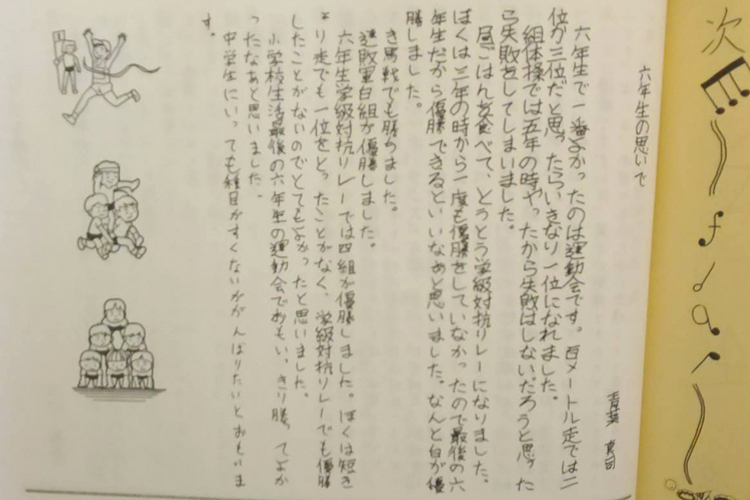 六年生の思いで
六年生で一番よかったのは運動会です。百メートル走では二
位か三位だと思ったらいきなり一位になれました。
組体操では五年の時やったから失敗はしないだろうと思った
ら失敗をしてしまいました。
昼ごはんを食べて、とうとう学級対抗リレーになりました。
ぼくは三年の時から一度も優勝をしていなかったので最後の六
年生だから優勝できるといいなあと思いました。なんと白が優
勝しました。
き馬戦でも勝ちました。
連敗軍白組が優勝しました。
六年生学級対抗リレーでは四組が優勝しました。ぼくは短き
ょり走でも一位をとったことがなく、学級対抗リレーでも優勝
したことがないのでとてもよかったと思いました。
小学校生活最後の六年生の運動会でおもいっきり勝ってよか
ったなあと思いました。
中学生にいっても種目がすくないががんばりたいとおもいま
す。
次